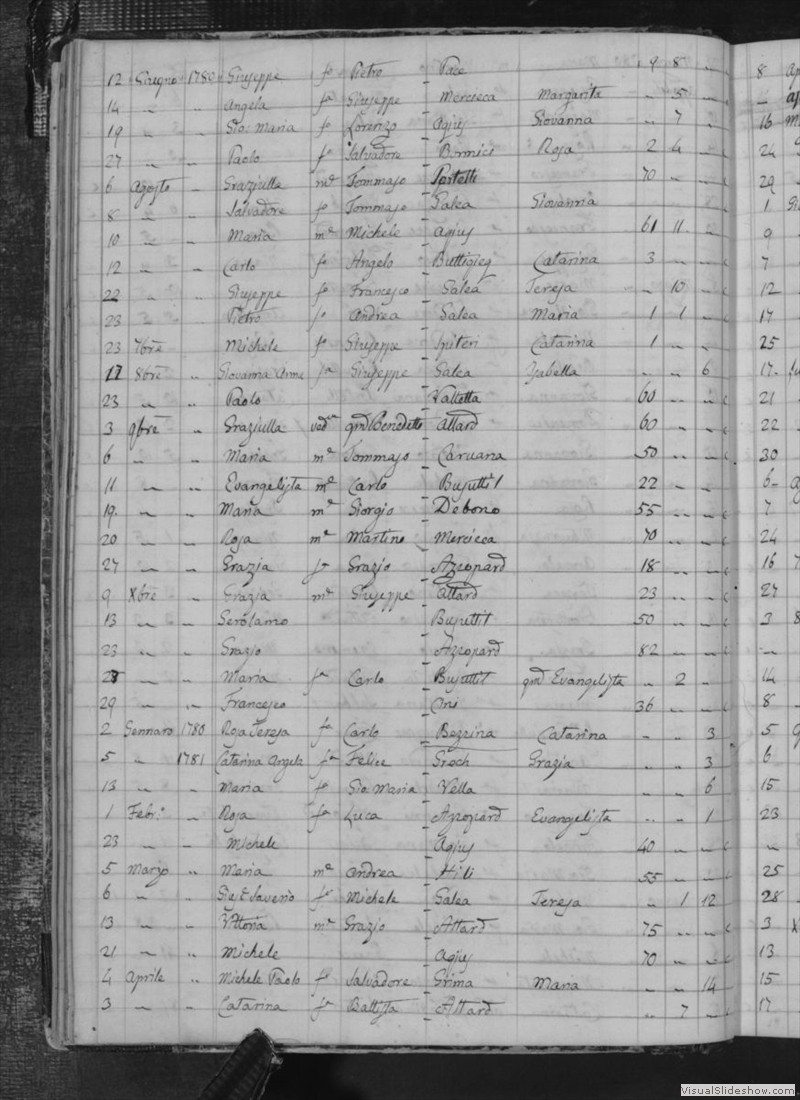 12 Giugno 1780 Giuseppe fo Pietro Pace 9 8 „
14 „ „ Angela fa Giuseppe Mercieca Margarita „ 5 „
19 „ „ Gio: Maria fo Lorenzo Agius Giovanna „ 7 „
27 „ „ Paolo fo Salvadore Bonnici Rosa 2 4 „
6 Agosto „ Graziulla me Tommaso Portelli 70 „ „
8 „ „ Salvadore fo Tommaso Galea Giovanna
10 „ „ Maria me Michele Agius 61 11 „
12 „ „ Carlo fo Angelo Buttigieg Catarina 3 „ „
22 „ „ Giuseppe fo Francesco Galea Teresa „ 10 „
23 „ „ Pietro fo Andrea Galea Maria 1 1 „
23 7bre „ Michele fo Giuseppe Spiteri Catarina 1 „ „
17 8bre „ Giovanna Anna fa Giuseppe Galea Ysabella „ „ 6
23 „ „ Paolo Valletta 60 „ „
3 9bre „ Graziulla veda qmd Benedetto Attard 60 „ „
6 „ „ Maria me Tommaso Caruana 50 „ „
11 „ „ Evangelista me Carlo Busuttil 22 „ „
19 „ „ Maria me Giorgio Debono 55 „ „
20 „ „ Rosa me Martino Mercieca 70 „ „
27 „ „ Grazia fa Grazio Azzopard 18 „ „
9 Xbre „ Grazia me Giuseppe Attard 23 „ „
13 „ „ Gerolamo Busuttil 50 „ „
23 „ „ Grazio Azzopard 82 „ „
28 „ „ Maria fa Carlo Busuttil qmd Evangelista „ 2 „
29 „ „ Francesco 36 „ „
2 Gennaro 1780 Rosa Teresa fa Carlo Bezzina Catarina „ „ 3
5 „ 1781 Catarina Angela fa Felice Grech Grazia „ „ 3
13 „ „ Maria fa Gio: Maria Vella „ „ 6
1 Febro „ Rosa fa Luca Azzopard Evangelista „ „ 1
23 „ „ Michele Agius 40 „ „
5 Marzo „ Maria me Andrea Hili 55 „ „
6 „ „ Giuse Saverio fo Michele Galea Teresa „ 1 12
13 „ „ Vittoria me Grazio Attard 75 „ „
21 „ „ Michele Agius 70 „ „
4 Aprile „ Michele Paolo fo Salvadore Grima Maria „ „ 14
3 „ „ Catarina fa Battista Attard „ 7 „
8
16
24
29
1
9
7
12
17
25
17
21
22
30
6
7
24
16
27
3
14
8
5
6
15
23
25
28
3
13
15
17
VisualSlideshow.com